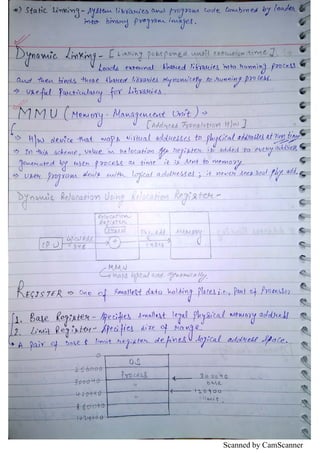 *) Static Linking - System libraries and program code combined by loader
into binary program images.
Dynamic Linking - [Linking postponed until execution time]
Loads external shared libraries into running process
and then binds those shared libraries dynamically to running process.
→ Useful particularly for libraries.
MMU (Memory - Management Unit) →
[Address Translation H/w]
→ H/w device that maps virtual addresses to physical addresses at run time
→ In this scheme, value in relocation register is added to every address
generated by user process at time it is sent to memory
→ User program deals with logical addresses; it never sees real phy. add.
Dynamic Relocation Using Relocation Register -
Relocation
Register
CPU
Logical add
346
+
Phy. add
14346
Memory
MMU
maps logical add. dynamically
REGISTER → One of smallest data holding places i.e., part of Processor
1. Base Register - Specifies smallest legal physical memory address
2. Limit Register - Specifies size of range
• A pair of base & limit register defines logical address space.
0
O.S
256000
Process
300040
300040
base
420940
120900
limit.
880000
1024000
Scanned by CamScanner